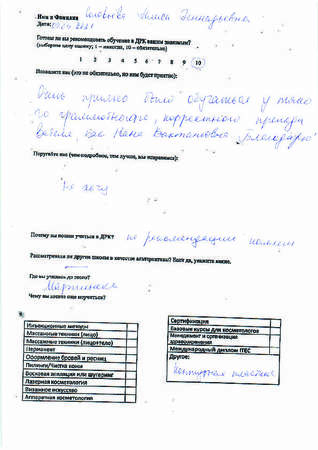 Имя и Фамилия Соловьева Алиса Геннадьевна
Дата:
Готовы ли вы рекомендовать обучение в ДРК вашим знакомым?
(выберите одну оценку, 1 – никогда, 10 – обязательно)
1 2 3 4 5 6 7 8 9 10
Похвалите нас (это не обязательно, но нам будет приятно):
Очень приятно было обучаться у такого
грамотного, корректного препода
вателя, как Нана Вахтанговна. Благодарю
Поругайте нас (чем подробнее, тем лучше, мы исправимся):
Не хочу
Почему вы пошли учиться в ДРК? по рекомендации коллеги
Рассматривали ли другие школы в качестве альтернативы? Если да, укажите какие.
Где вы учились до этого?
Мартинекс
Чему вы хотите еще научиться?
Инъекционные методы
Массажные техники (лицо)
Массажные техники (лицо+тело)
Перманент
Оформление бровей и ресниц
Пилинги/Чистка кожи
Восковая эпиляция или шугаринг
Лазерная косметология
Визажное искусство
Аппаратная косметология
Сертификация
Базовые курсы для косметологов
Менеджмент и организация
здравоохранения
Международный диплом ITEC
Другое:
Контурная пластика